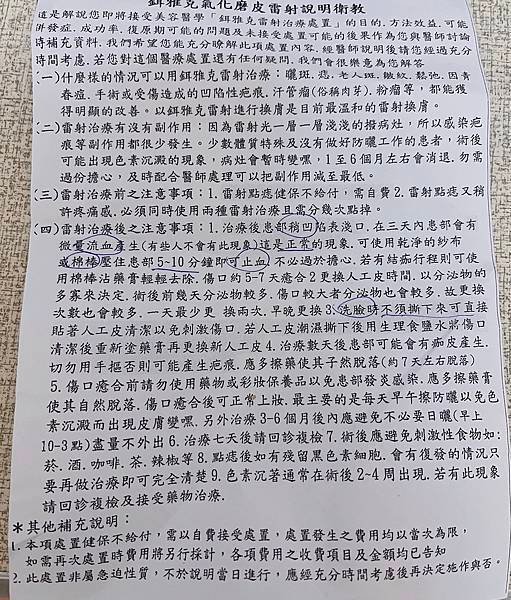 鉺雅克氣化磨皮雷射說明衛教
這是解說您即將接受美容醫學「鉺雅克雷射治療處置」的目的.方法效益.可能
併發症.成功率.復原期可能的問題及未接受處置可能的後果作為您與醫師討論
時補充資料.我們希望您能充分瞭解此項處置內容.經醫師說明後請您經過充分
時間考慮.若您對這個醫療處置還有任何疑問.我們會很樂意為您解答
(一)什麼樣的情況可以用鉺雅克雷射治療：曬斑.痣.老人斑.皺紋.鬆弛.因青
春痘.手術或受傷造成的凹陷性疤痕.汗管瘤(俗稱肉芽).粉瘤等，都能獲
得明顯的改善。以鉺雅克雷射進行換膚是目前最溫和的雷射換膚。
(二)雷射治療有沒有副作用：因為雷射光一層一層淺淺的撥病灶，所以感染疤
痕等副作用都很少發生。少數體質特殊及沒有做好防曬工作的患者，術後
可能出現色素沉澱的現象，病灶會暫時變黑，1至6個月左右會消退.勿需
過份擔心，及時配合醫師處理可以把副作用減至最低。
(三)雷射治療前之注意事項：1.雷射點痣健保不給付，需自費2.雷射點痣又稍
許疼痛感.必須同時使用兩種雷射治療且需分幾次點掉。
(四)雷射治療後之注意事項：1.治療後患部稍凹陷表淺口.在三天內患部會有
微量流血產生(有些人不會有此現象)這是正常的現象.可使用乾淨的紗布
或棉棒壓住患部5~10分鐘即可止血.不必過於擔心.若有結痂行程則可使
用棉棒沾藥膏輕輕去除.傷口約5-7天癒合2更換人工皮時間.以分泌物的
多寡來決定.術後前幾天分泌物較多.傷口較大者分泌物也會較多.故更換
次數也會較多.一天最少更 換兩次.早晚更換3.洗臉時不須撕下來可直接
貼著人工皮清潔以免刺激傷口.若人工皮潮濕撕下後用生理食鹽水將傷口
清潔後重新塗藥膏再更換新人工皮4.治療數天後患部可能會有痂皮產生.
切勿用手摳否則可能產生疤痕.應多擦藥使其子然脫落(約7天左右脫落)
5.傷口癒合前請勿使用藥物或彩妝保養品以免患部發炎感染.應多擦藥膏
使其自然脫落.傷口癒合後可正常上妝.最主要的是每天早午擦防曬以免色
素沉澱而出現皮膚變黑.另外治療3-6個月後內應避免不必要日曬(早上
10-3點)盡量不外出6.治療七天後請回診複檢7.術後應避免刺激性食物如:
菸.酒.咖啡.茶.辣椒等8.點痣後如有殘留黑色素細胞.會有復發的情況只
要再做治療即可完全清楚9.色素沉著通常在術後2~4周出現.若有此現象
請回診複檢及接受藥物治療.
＊其他補充說明：
1.本項處置健保不給付，需以自費接受處置，處置發生之費用均以當次為限，
如需再次處置時費用將另行採計，各項費用之收費項目及金額均已告知
2.此處置非屬急迫性質，不於說明當日進行，應經充分時間考慮後再決定施作與否。